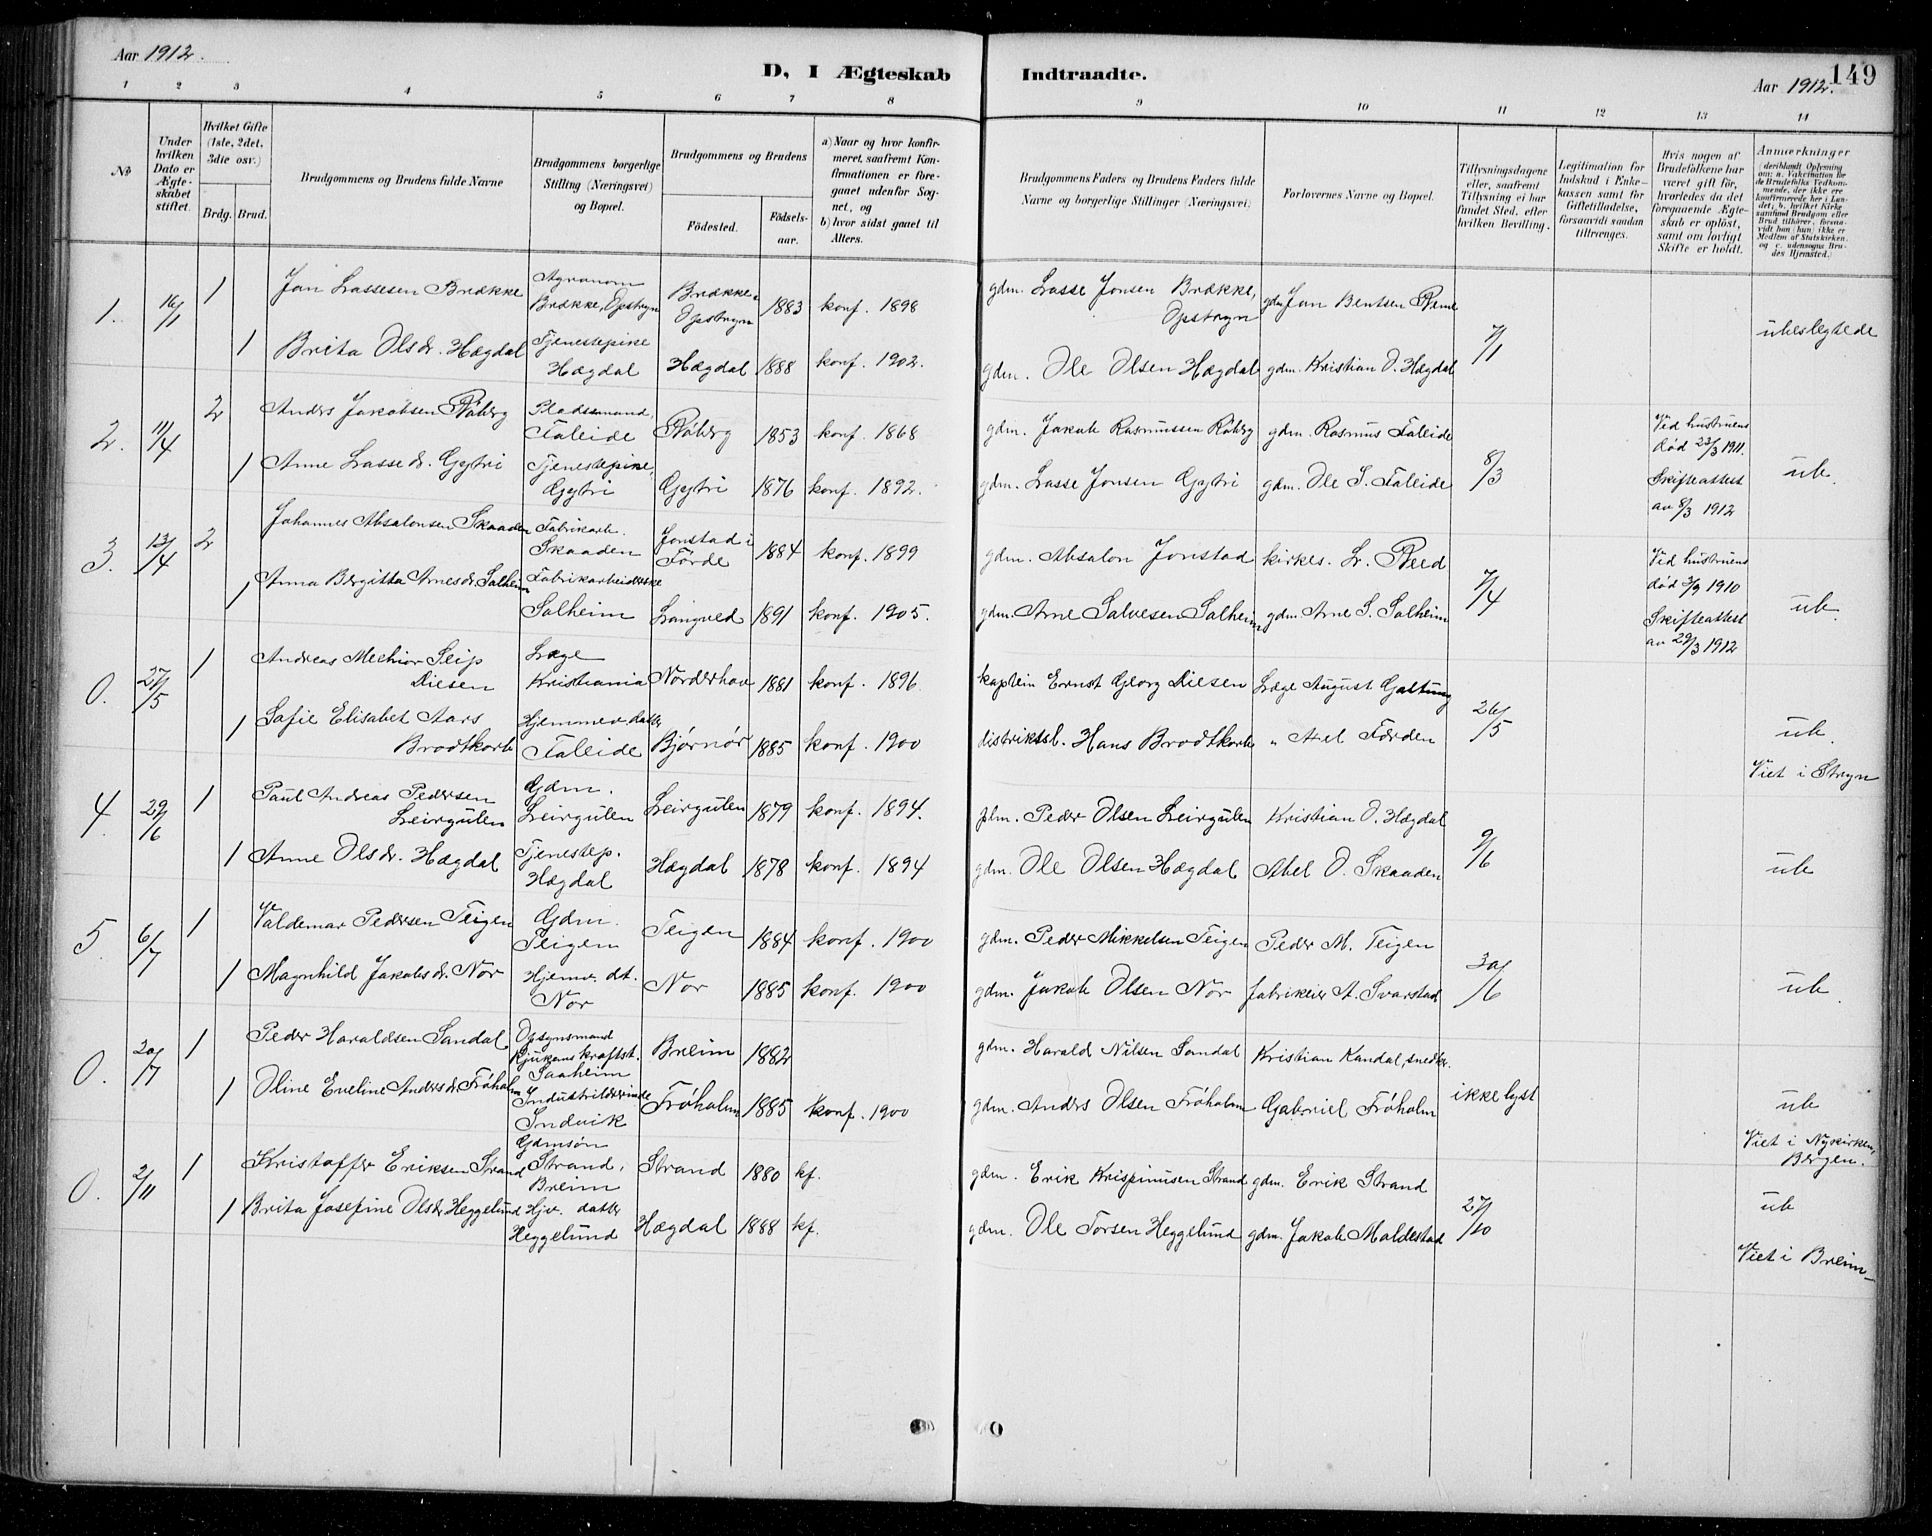 Aar 1912.
D, I Ægteskab Indtraadte.
Aar 1912.
149
1 2 3 4 5 6 7 8 9 10 11 12 13 14
No
Under hvilken Dato er Ægteskabet stiftet.
Hvilket Gifte (1ste, 2det, 3die osv.)
Brdg. Brud.
Brudgommens og Brudens fulde Navne
Brudgommens borgerlige Stilling (Næringsvei) og Bopæl.
Brudgommens og Brudens
Fødested.
Fødselsaar.
a) Naar og hvor konfirmeret, saafremt Konfirmationen er foregaaet udenfor Sognet, og
b) hvor sidst gaaet til Alters.
Brudgommens Faders og Brudens Faders fulde Navne og borgerlige Stillinger (Næringsvei)
Forlovernes Navne og Bopæl.
Tillysningsdagene eller, saafremt Tillysning ei har fundet Sted, efter hvilken Bevilling.
Legitimation for Indskud i Enkekassen samt for Giftetilladelse, forsaavidt saadan tiltrænges.
Hvis nogen af Brudefolkene har været gift før, hvorledes da det foregaaende Ægteskab er opløst, samt om lovligt Skifte er holdt.
Anmærkninger (deriblandt Oplysning om: a. Vakcination for de Brudefolks Vedkommende, der ikke ere konfirmerede her i Landet; b. hvilket Kirkesamfund Brudgom eller Brud tilhører, forsaavidt han (hun) ikke er Medlem af Statskirken, og c. udensogns Brudes Hjemsted.)
1. 16/1 1 Jon Lassesen Brække Agronom Brække, Opstryn Brække, Opstryn 1883 konf. 1898 gdm. Lasse Jonsen Brække, Opstryn gdm Jon Bentsen 7/1 ubeslegtede
1 Brita Olsdr. Hægdal Tjenestepike Hægdal Hægdal 1888 konf. 1902. gdm. Ole Olsen Hægdal gdm. Kristian O. Hægdal
2. 11/4 2 Anders Jakobsen Råberg Pladsemand, Faleide Råberg 1853 konf. 1868 gdm. Jakob Rasmussen Råberg gdm. Rasmus Faleide 8/3 Ved hustruens død 23/3 1911. Skifteattest av 8/3 1912 ub.
1 Anne Lassedr. Gytri Tjenestepike, Gytri Gytri 1876 konf. 1892. gdm. Lasse Jonsen Gytri gdm. Ole S. Faleide
3. 13/4 2 Johannes Absalonsen Skaaden Fabrikarb. Skaaden Jonstad i Førde 1884 konf. 1899 gdm. Absalon Jonstad kirkes. L. Reed 7/4 Ved hustruens død 3/9 1910 Skifteattest av 29/3 1912 ub.
1 Anna Bergitta Arnesdr. Solheim Fabrikarbeiderske Solheim Langved 1891 konf. 1905. gdm. Arne Salvesen Solheim gdm. Arne S. Solheim
0. 27/5 1 Andreas Mechior Seip Diesen Læge Kristiania Norderhov 1881 konf. 1896. kaptein Ernst Georg Diesen Læge August Galtung 26/5 ub. Viet i Stryn
1 Sofie Elisabet Aars Brodtkorb Hjemmev. datter Faleide Bjørnør 1885 konf. 1900 distriktsl. Hans Brodtkorb " Axel Førden
4. 29/6 1 Paul Andreas Pedersen Leirgulen Gdm. Leirgulen Leirgulen 1879 konf. 1894. plm. Peder Olsen Leirgulen Kristian O. Hægdal 9/6 ub
1 Anne Olsdr. Hægdal Tjenestep. Hægdal Hægdal 1878 konf. 1894 gdm. Ole Olsen Hægdal Abel O. Skaaden
5. 6/7 1 Valdemar Pedersen Teigen Gdm. Teigen Teigen 1884 konf. 1900 gdm. Peder Mikkelsen Teigen Peder M. Teigen 30/6 ub.
1 Magnhild Jakobsdr. Nor Hjemv. dt. Nor Nor 1885 konf. 1900 gdm. Jakob Olsen Nor fabrikeier A. Svarstad
0. 20/7 1 Peder Haraldsen Sandal Opsynsmand Rjukans kraftst. Saaheim Breim 1882 gdm. Harald Nilsen Sandal Kristian Kandal, snedker. ikke lyst ub Viet i Nykirken, Bergen.
1 Oline Eveline Andersdr. Frøholm Industrilærerinde Indvik Frøholm 1885 konf. 1900 gdm. Anders Olsen Frøholm Gabriel Frøholm
0. 2/11 1 Kristoffer Eriksen Strand Gdmsøn Strand, Breim Strand 1880 kf. gdm. Erik Krispinusen Strand gdm. Erik Strand 27/10 ub Viet i Breim
1 Brita Josefine Olsdr Heggelund Hjv. datter Heggelund Hægdal 1888 kf. gdm. Ole Torsen Heggelund gdm. Jakob Maldestad